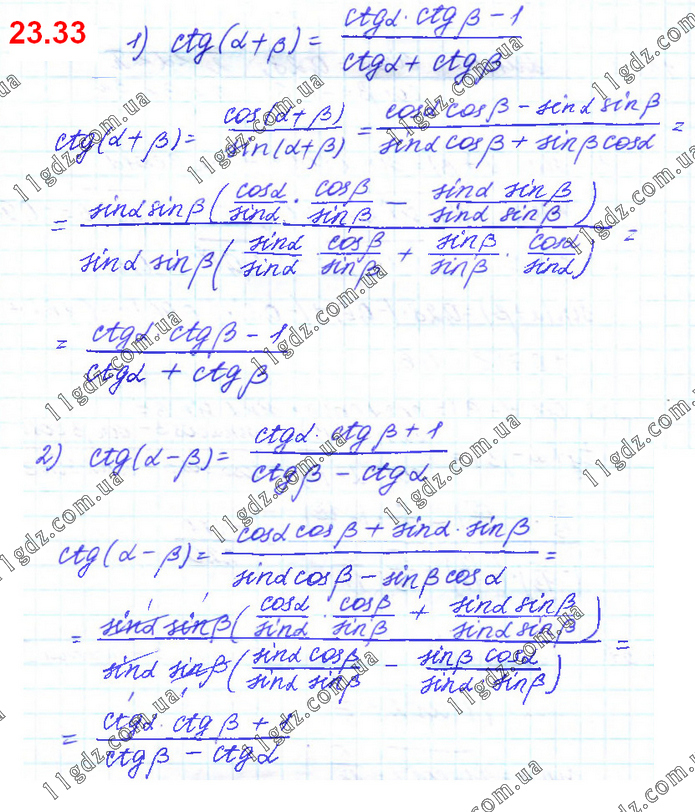 23.33
1) ctg(α+β) = (ctgα · ctgβ − 1)/(ctgα + ctgβ)
ctg(α+β) = cos(α+β)/sin(α+β) = (cosα cosβ − sinα sinβ)/(sinα cosβ + sinβ cosα) =
= (sinα sinβ (cosα/sinα · cosβ/sinβ − sinα sinβ/sinα sinβ))/(sinα sinβ (sinα/sinα · cosβ/sinβ + sinβ/sinβ · cosα/sinα)) =
= (ctgα · ctgβ − 1)/(ctgα + ctgβ)
2) ctg(α−β) = (ctgα · ctgβ + 1)/(ctgβ − ctgα)
ctg(α−β) = (cosα cosβ + sinα · sinβ)/(sinα cosβ − sinβ cosα) =
= (sinα sinβ (cosα/sinα · cosβ/sinβ + sinα sinβ/sinα sinβ))/(sinα sinβ (sinα cosβ/sinα sinβ − sinβ cosα/sinα sinβ)) =
= (ctgα · ctgβ + 1)/(ctgβ − ctgα)
11gdz.com.ua